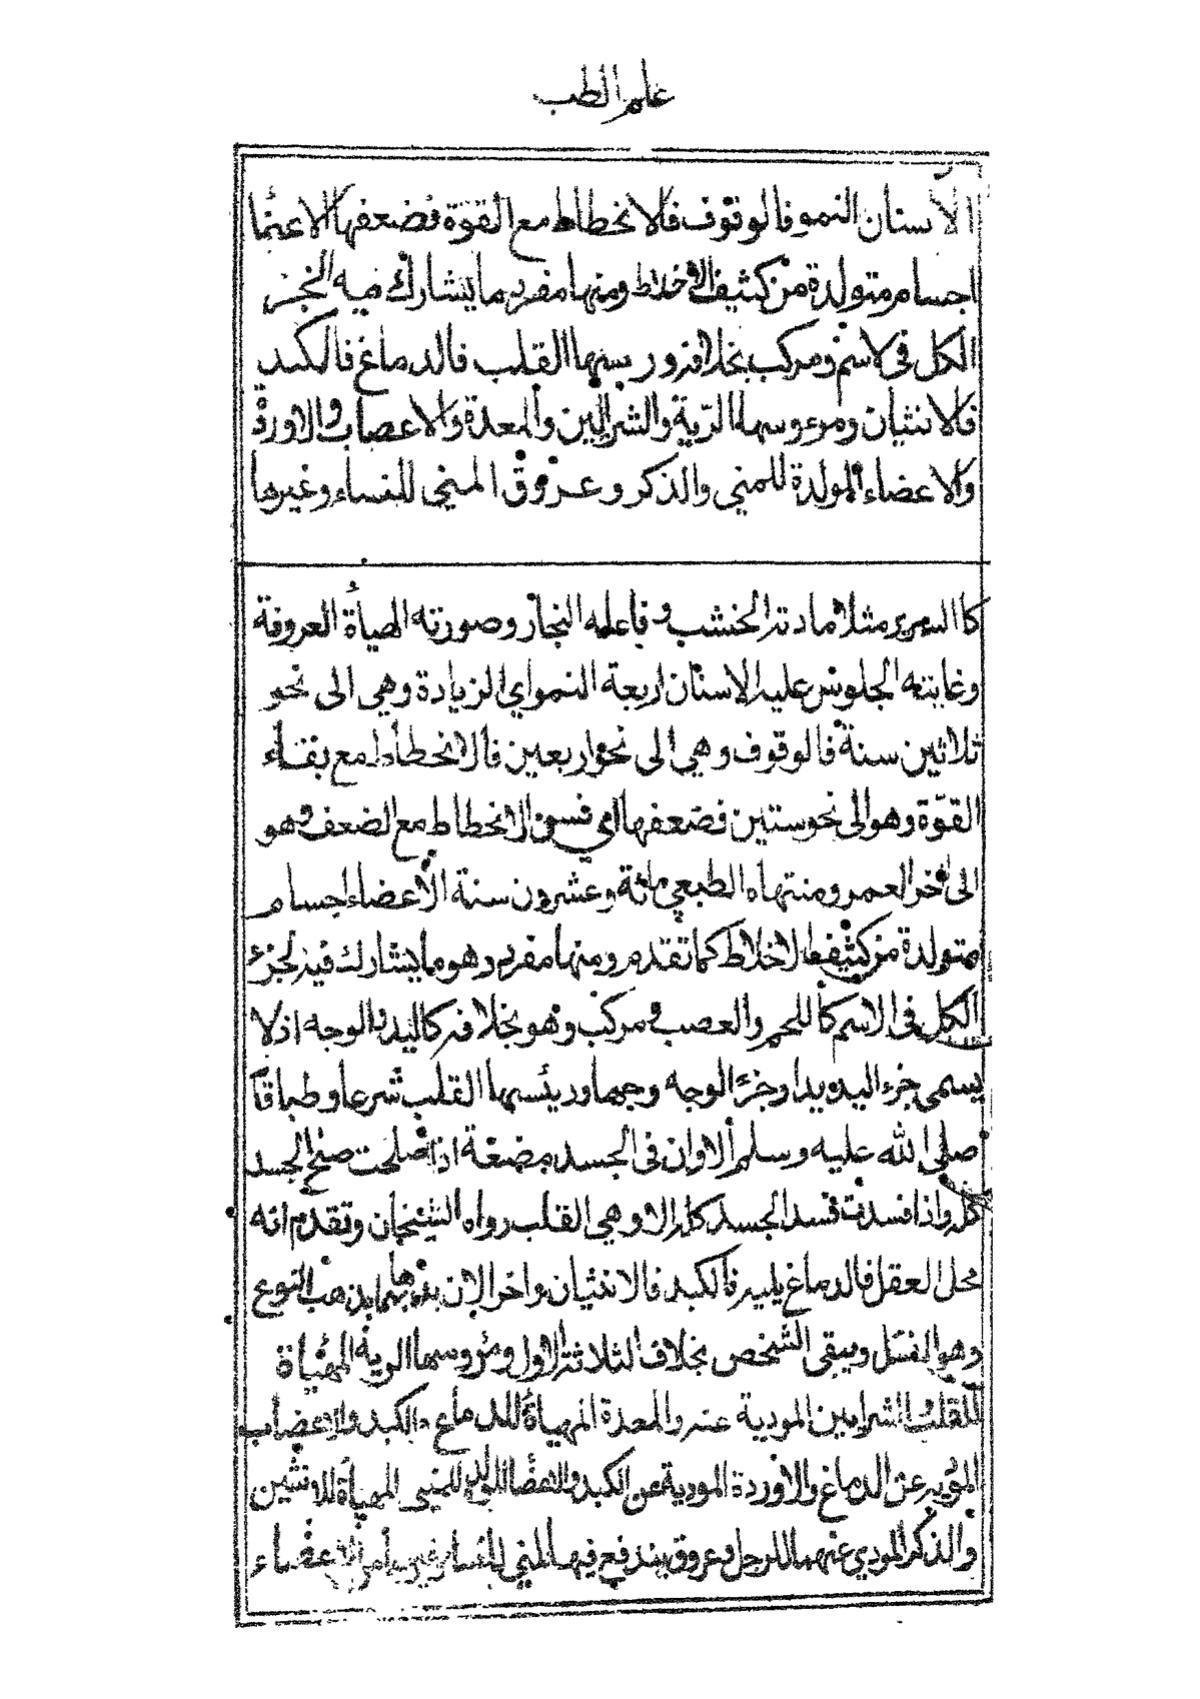 علم الطب
الاسنان النمو فالوقوف فالانحطاط مع القوة فضعفها الاعضا
اجسام متولدة من كثيف الاخلاط ومنها مفرد ما يشارك فيه الجزء
الكل فى لاسم ومركب بخلافه ورييسها القلب فالدماغ فالكبد
فالانثيان ومرءوسها الرّية والشرايين والمعدة والاعصاب والاوردة
والاعضاء المولدة للمني والذكر وعروق المني للنساء وغيرها
كالسرير مثلا مادته الخشب وفاعله النجار وصورته الهيأة المعروفة
وغايته الجلوس عليه الاسنان اربعة النمو اي الزيادة وهي الى نحو
ثلاثين سنة فالوقوف وهي الى نحو اربعين فالانحطاط مع بقاء
القوّة وهو الى نحو ستين فضعفها اي فسن الانحطاط مع الضعف وهو
الى اخر العمر ومنتهاه الطبعي مائة وعشرون سنة الاعضاء اجسام
متولدة من كثيف الاخلاط كما تقدم ومنها مفرد وهو ما يشارك فيه الجزء
الكل فى الاسم كاللحم والعصب ومركب وهو بخلافه كاليد والوجه اذ لا
يسمى جزء اليد يدا وجزء الوجه وجها ورئيسها القلب شرعا وطبا قا
صلى الله عليه وسلم الا وان فى الجسد مضغة اذا صلحت صلح الجسد
كله واذا فسدت فسد الجسد كله الا وهي القلب رواه الشيخان وتقدم انه
محل العقل فالدماغ يليه فالكبد فالانثيان واخرا لان بفقدهما يذهب النوع
وهو النسل ويبقى الشخص بخلاف الثلاثة الاول ومرؤسها الرية المهيأة
للقلب والشرايين المودية عنه والمعدة المهيأة للدماغ والكبد والاعصاب
المودية عن الدماغ والاوردة المودية عن الكبد والاعضا المولدة للمني المهيأة للانثيين
والذكر المودي عنهما للرجل وعروق يندفع فيها المني للنسا وغير الاعضاء